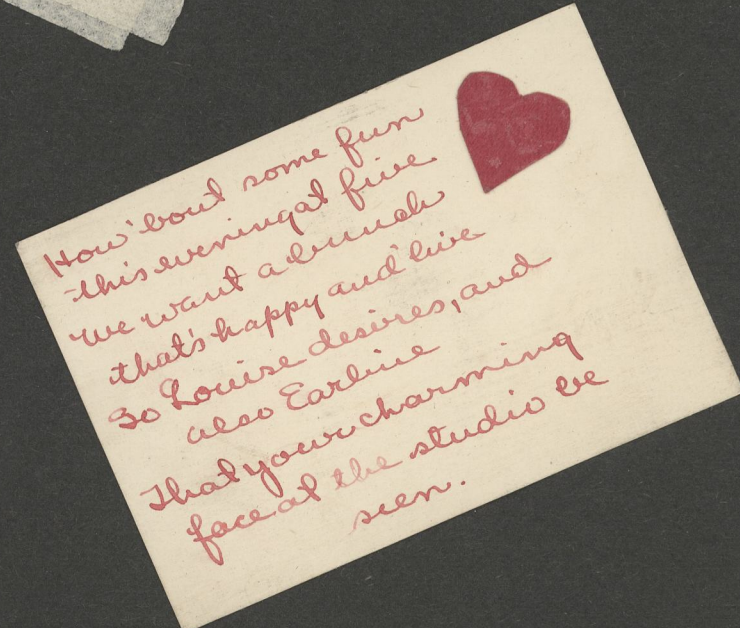 How 'bout some fun
this evening at five
we want a bunch
that's happy and 'live
So Louise desires, and
also Earline
That your charming
face at the studio be
seen.